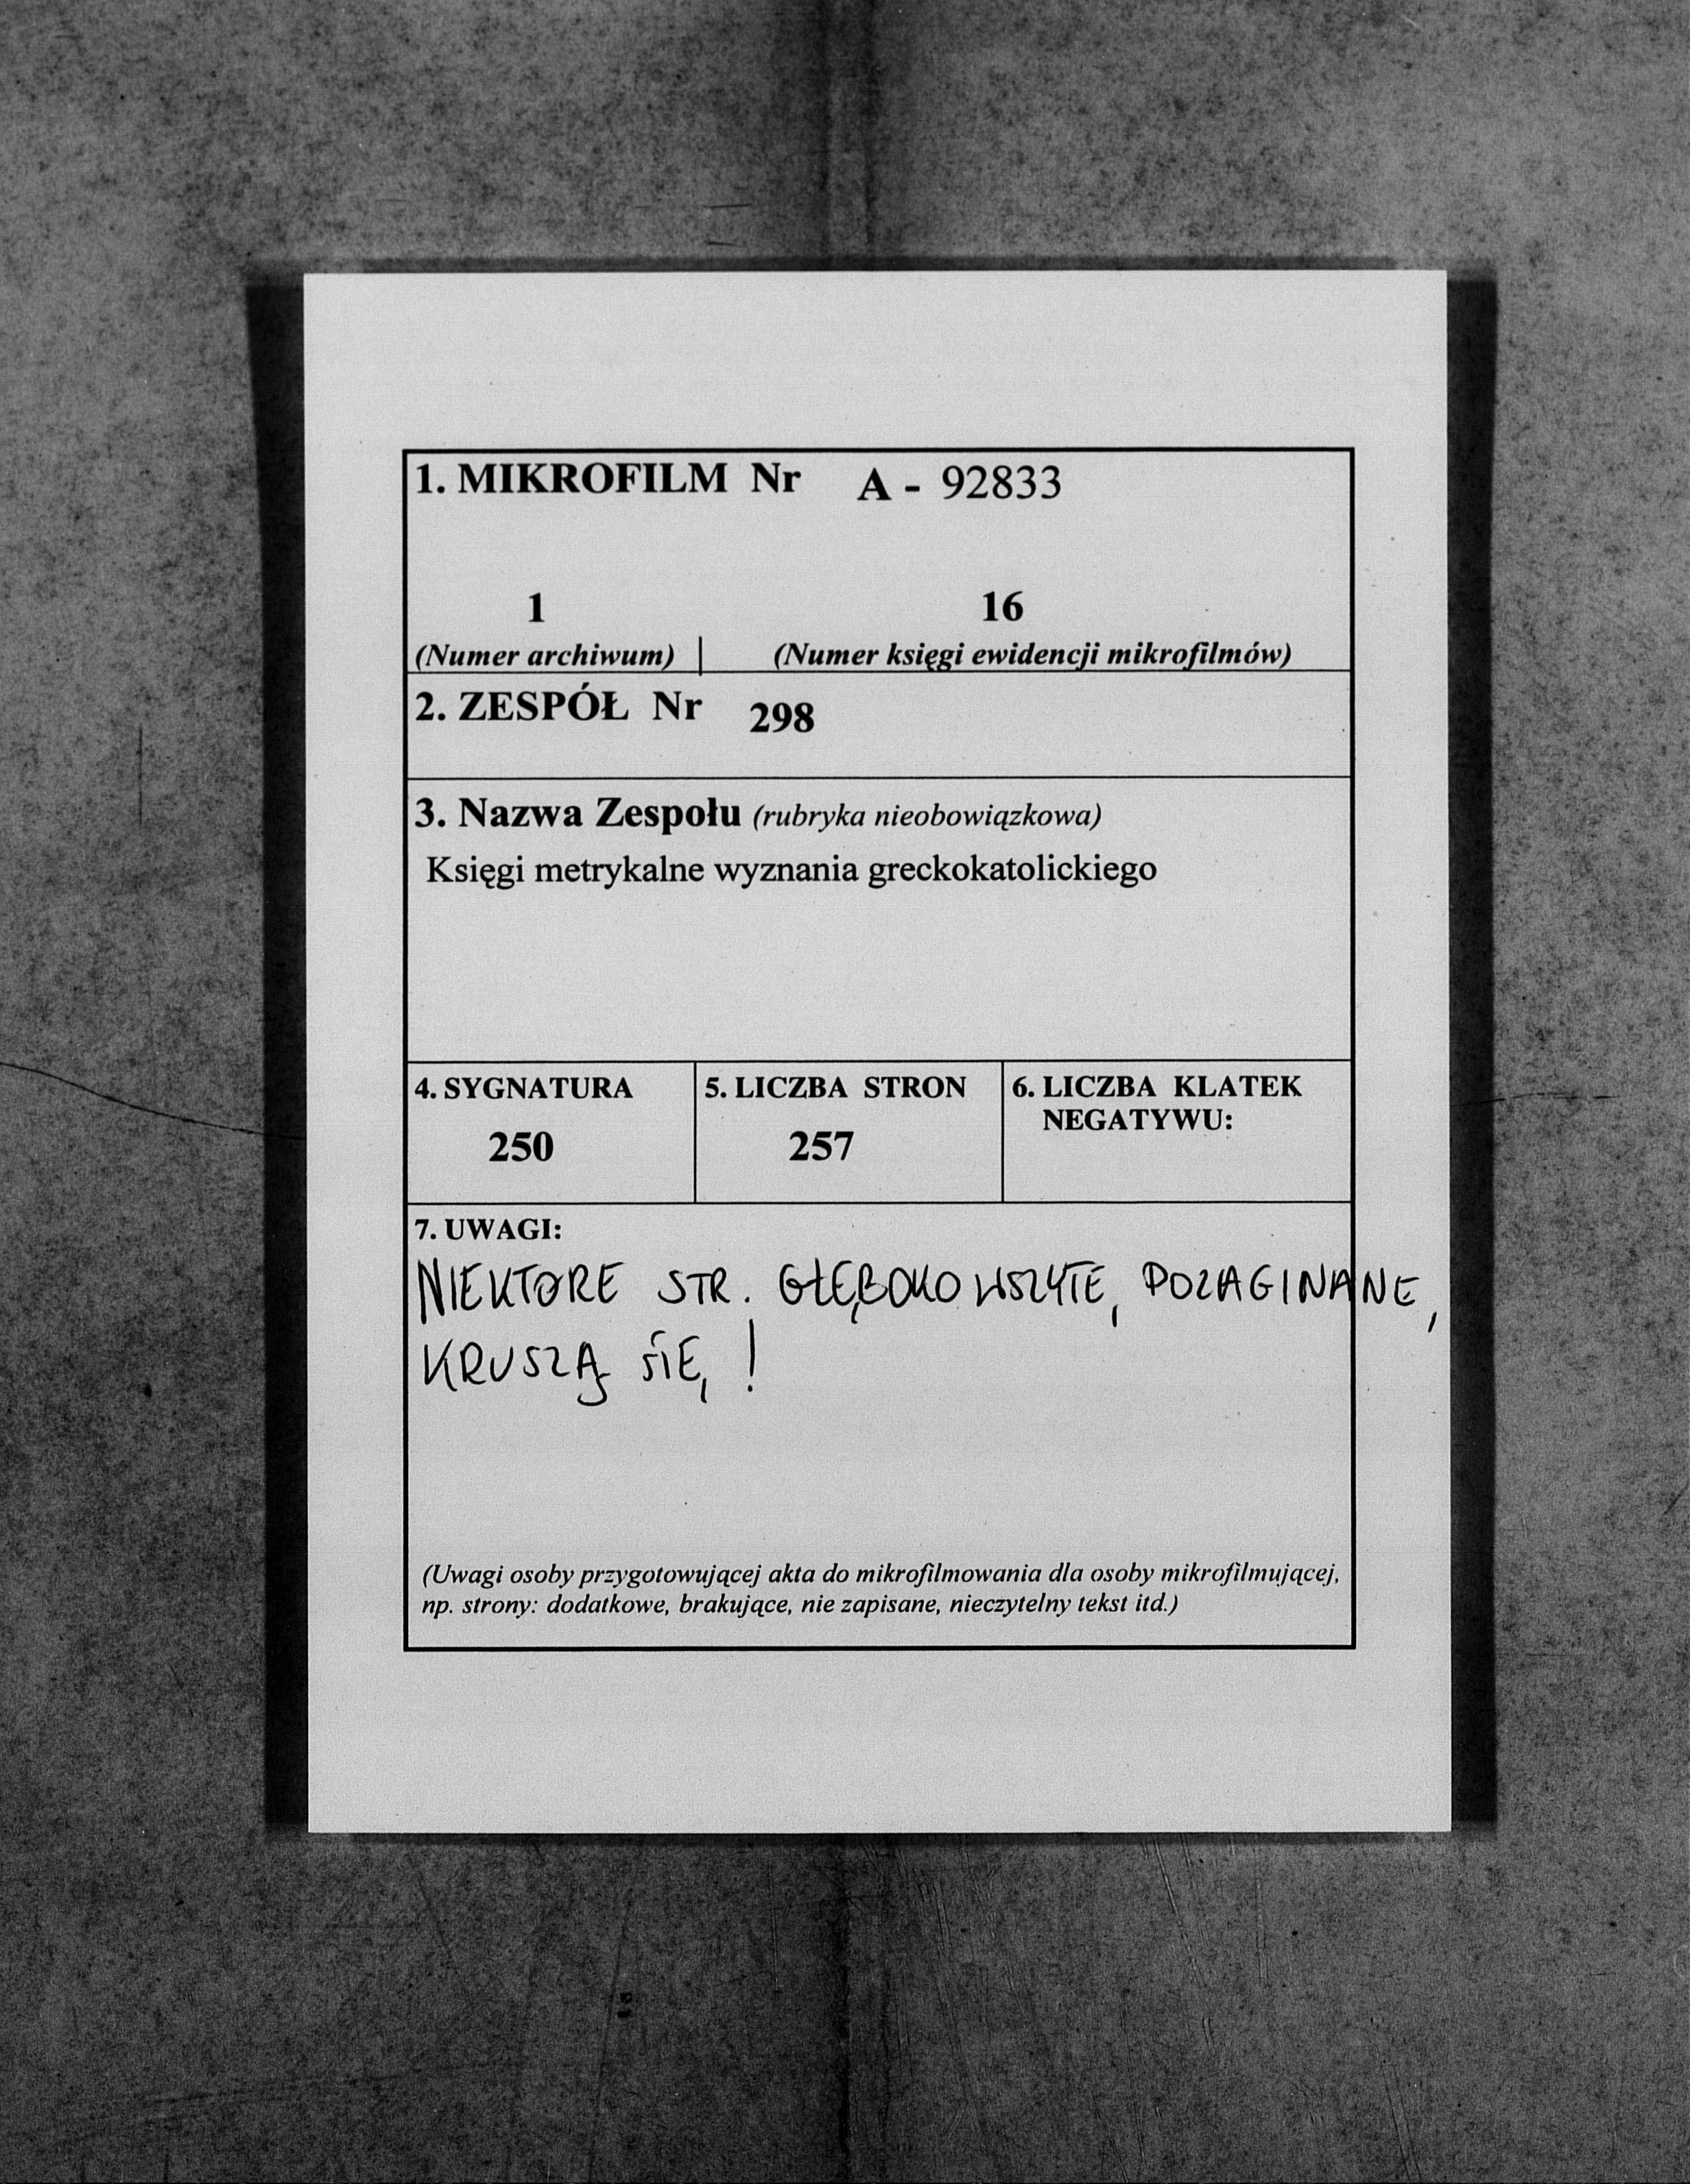 1. MIKROFILM Nr A - 92833
1 16
(Numer archiwum) | (Numer księgi ewidencji mikrofilmów)
2. ZESPÓŁ Nr 298
3. Nazwa Zespołu (rubryka nieobowiązkowa)
Księgi metrykalne wyznania greckokatolickiego
4. SYGNATURA
250
5. LICZBA STRON
257
6. LICZBA KLATEK
NEGATYWU:
7. UWAGI:
NIEKTORE STR. GŁĘBOKO WSZYTE, POZAGINANE,
KRUSZĄ SIĘ, !
(Uwagi osoby przygotowującej akta do mikrofilmowania dla osoby mikrofilmującej,
np. strony: dodatkowe, brakujące, nie zapisane, nieczytelny tekst itd.)